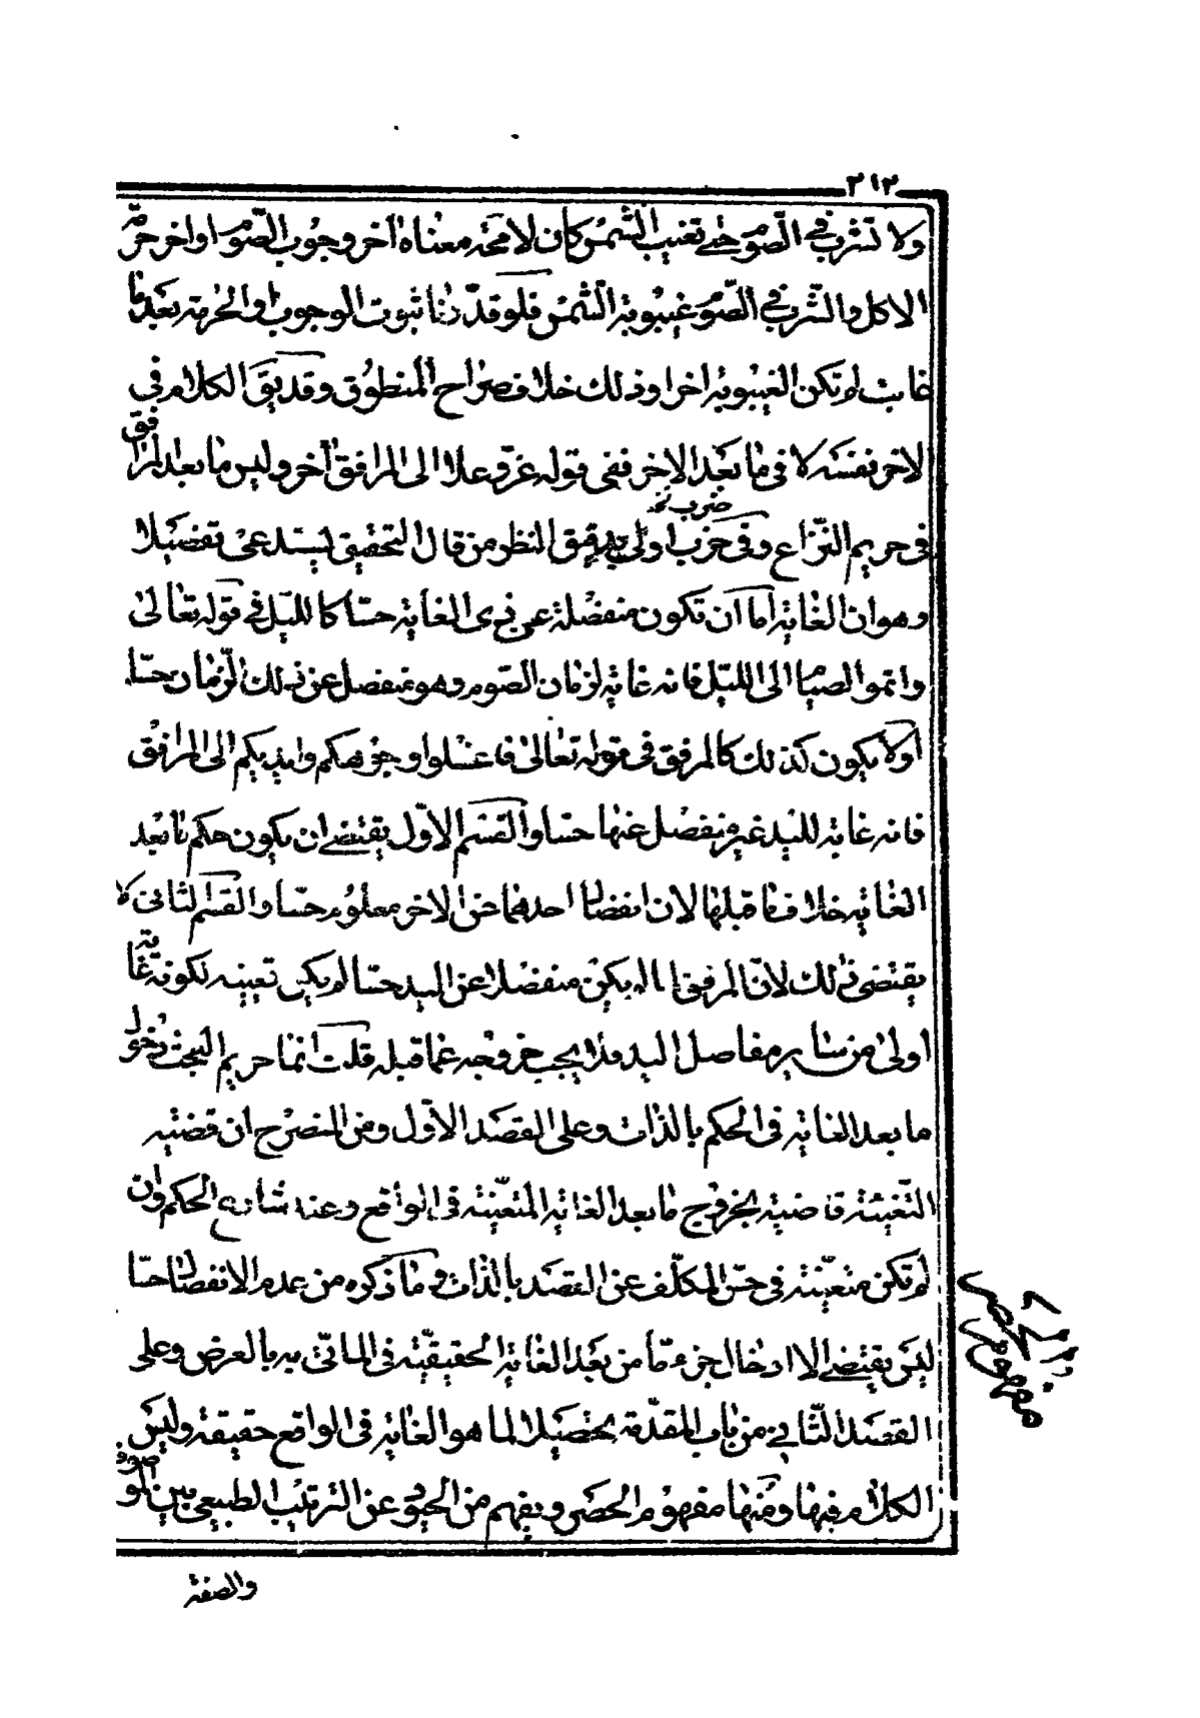 ٢١٢
ولا تشرب في الصّوم حتى تغيب الشّمس كان لا محة معناه آخر وجوب الصّوم او اخر حرمة
الاكل والشّرب في الصّوم غيبوبة الشّمس فلو قدّرنا ثبوت الوجوب او الحرمة بعد ما
غابت لم تكن الغيبوبة اخرا وذلك خلاف صراح المنطوق وقد يق الكلام في
لاخر نفسه لا في ما بعد الاخر ففى قوله عزّ وعلا الى المرافق آخر وليس ما بعد المرافق
في حريم النّزاع وفى حزب اولى تدقيق النظر من قال التحقيق يستدعى تفصيلا
ضرب نخ
وهو ان الغاية اما ان تكون منفصلة عن ذي الغاية حسّا كالليل في قوله تعالى
واتموا الصيام الى الليل فانه غاية لزمان الصوم وهو منفصل عن ذلك الزمان حسّا
اولا يكون كذلك كالمرفق في قوله تعالى فاغسلوا وجوهكم وايديكم الى المرافق
فانه غاية لليد غير منفصل عنها حسا والقسم الاوّل يقتضي ان يكون حكم ما بعد
الغاية خلاف ما قبلها لان انفصال احدهما عن الاخر معلوم حسا والقسم الثانى لا
يقتضى ذلك لانّ المرفق لما لم يكن منفصلا عن اليد حسا لم يكن تعينه لكونه غاية
اولى من ساير مفاصل اليد فلا يجب خروجه عما قبله قلت انما حريم البحث دخول
ما بعد الغاية في الحكم بالذات وعلى القصد الاوّل ومن المنصرح ان قضيّة
التّغيئة قاضية بخروج ما بعد الغاية المتعيّنة في الواقع وعند شارع الحكم وان
لم تكن متعيّنة في حسّ المكلّف عن القصد بالذات وما ذكره من عدم الانفصال حسّا
ليس يقتضي الا ادخال جزء مّا من بعد الغاية الحقيقيّة في الماتىّ به بالعرض وعلى
القصد الثّاني من باب المقدّمة تحصيلا لما هو الغاية في الواقع حقيقة وليس
الكلام فيها ومنها مفهوم الحصر ويفهم من الحيود عن الترتيب الطبيعى بين الموصوف
مفهوم الحصر
والصفة